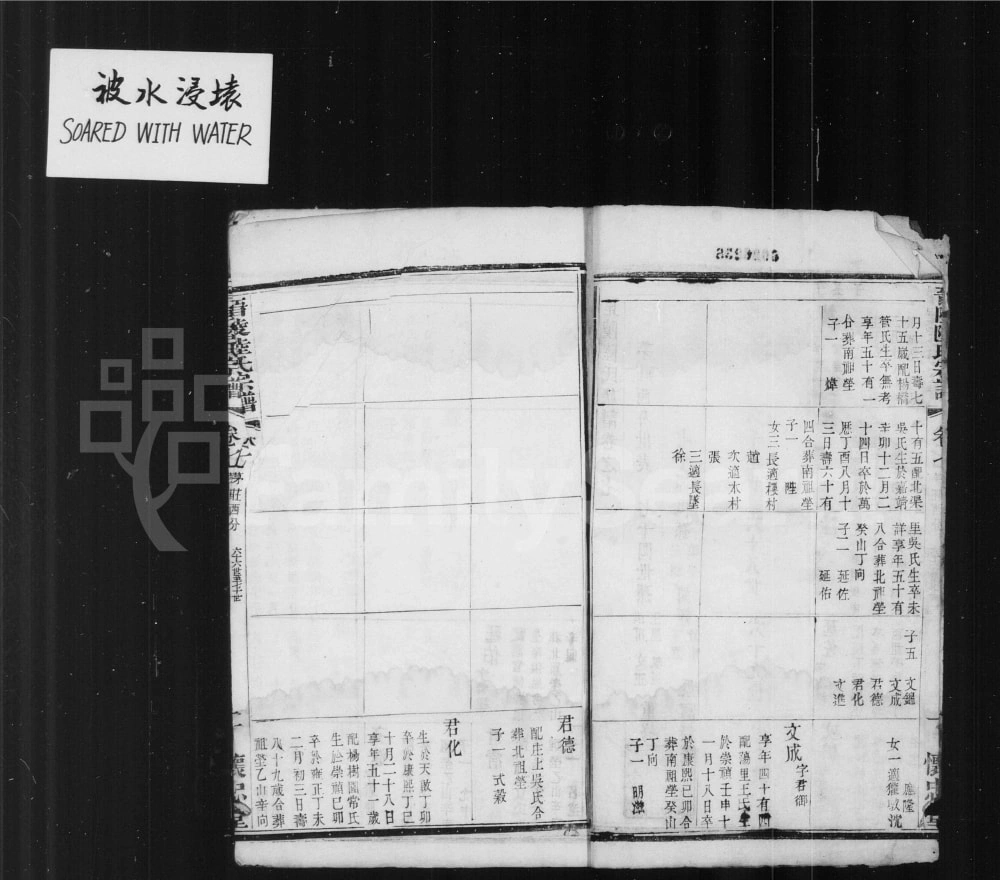 被水浸壊
SOARED WITH WATER
月十三日壽七
十五歲配楊橋
管氏生卒無考
享年五十有一
合葬南祖塋
子一 煒
十有五配北渠
吳氏生於嘉靖
辛卯十二月二
十四日卒於萬
厯丁酉八月十
三日壽六十有
四合葬南祖塋
子一 陞
女三長適
趙
次適木村
張
三適長溝
徐
里吳氏生卒未
詳享年五十有
八合葬北祖塋
癸山丁向
子二 延佐
延佑
子五 文
文成
君德
君化
文進
應隆
女一適
文成 字君御
享年四十有四
配蕩里王氏生
於崇禎壬申十
一月十八日卒
於康熙己卯合
葬南祖塋癸山
丁向
子一 明
君德
配庄上吳氏合
葬北祖塋
子一 式穀
君化
生於天啟丁卯
十月二十八日
卒於康熙丁巳
享年五十一歲
配楊樹園常氏
生於崇禎己卯
卒於雍正丁未
二月初三日壽
八十九歲合葬
祖塋乙山辛向
晉陵陸氏宗譜
卷七
西分
懷忠堂